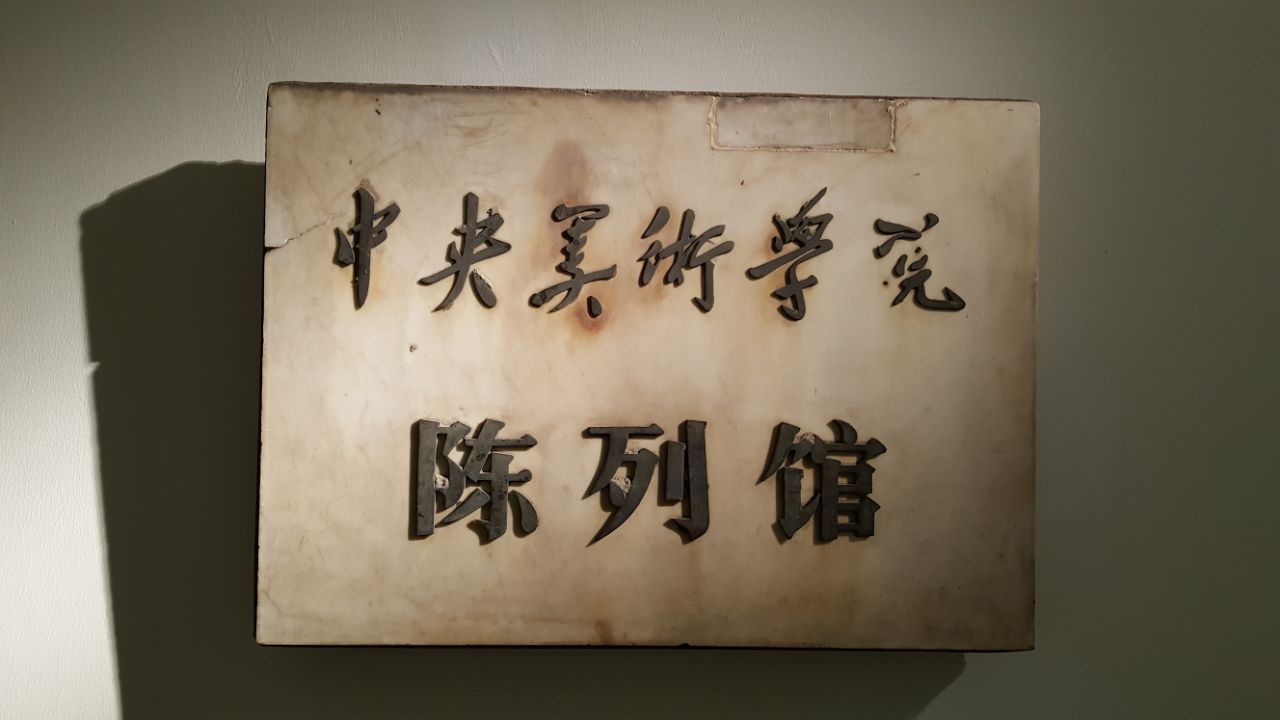 中央美術學院
陈列馆